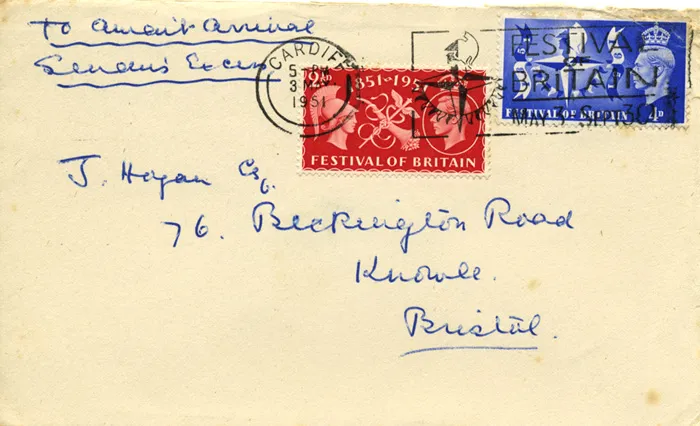 To await arrival
Senders Excess
CARDIFF
5 - PM
3 MAY
1951
FESTIVAL
OF
BRITAIN
MAY 3 - SEP 30
2½D
1851-1951
FESTIVAL OF BRITAIN
FESTIVAL OF BRITAIN 4D
J. Hogan Esq.
76. Beckington Road
Knowle.
Bristol.